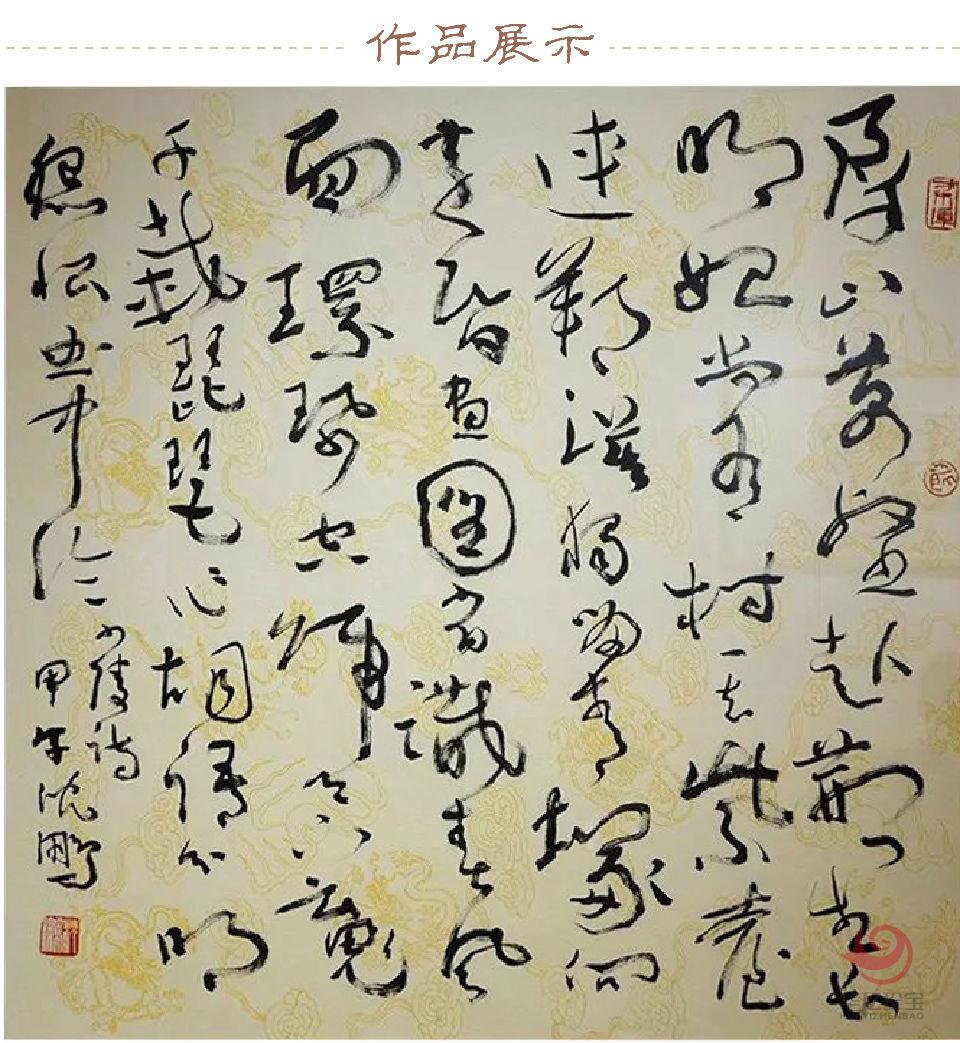 作品展示
群山万壑赴荆门生长
明妃尚有村一去紫台
连朔漠独留青冢向
黄昏画图省识春风
面环珮空归夜月魂
千载琵琶作胡语分明
怨恨曲中论
少陵诗
甲午沈鹏